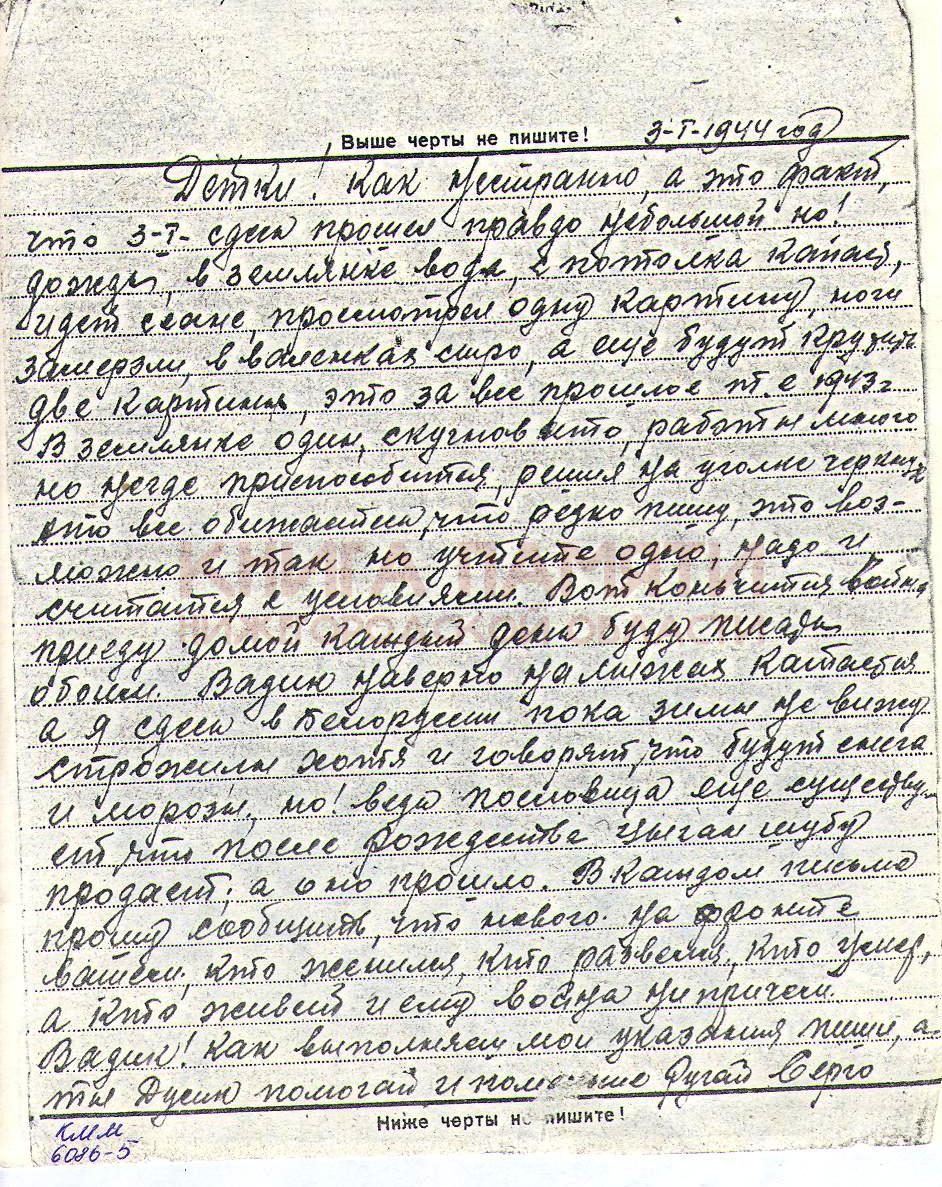 Выше черты не пишите! 3-I-1944 год
Детки! Как нестранно, а это факт,
что 3-I- сдесь прошел правдо небольшой но!
дождь, в землянке вода, с потолка капает,
идет сеанс, просмотрел одну картину, ноги
замерзли, в валенках сыро, а еще будут крутить
две картины, это за все прошлое т.е 1943г
В землянке один, скучновато, работы много
но негде приспособится, решил на уголке черкнуть
что все обижаетесь, что редко пишу, это воз-
можно и так но учтите одно, надо и
считатся с условиями. Вот коньчится война
приеду домой каждый день буду писать
обоим. Вадик наверно на лыжах катается
а я сдесь в Белоруссии пока зимы не вижу
старожилы хотя и говорят, что будут снега
и морозы, но! ведь пословица еще существу-
ет, что после рождества цыган шубу
продает, а оно прошло. В каждом письме
прошу сообщить, что нового на фронте
вашем, кто женился, кто развелся, кто умер,
а кто живет и ему война нипричем.
Вадик! Как выполняеш мои указания пиши, а-
ты Дусик помогай и поменьше ругай Серго
Ниже черты не пишите!
КММ
6086-5
КНИГА ПАМЯТИ